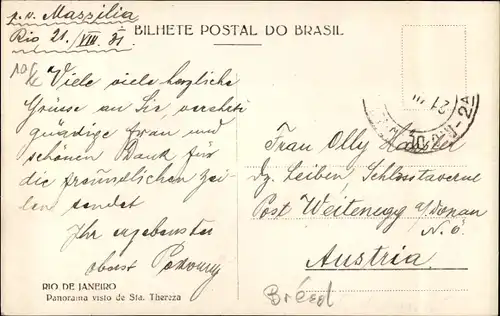 p. v. Massilia
Rio 21./VIII. 31.
BILHETE POSTAL DO BRASIL
Viele viele herzliche
Grüsse an Sie, verehrte
gnädige Frau und
schönen Dank für
die freundlichen Zei-
len sendet
Ihr ergebenster
RIO DE JANEIRO
Panorama visto de Sta. Thereza
Frau Olly
Leiben, Schlosstaverne
Post Weitenegg a/Donau
N. Ö.
Austria
Brésil